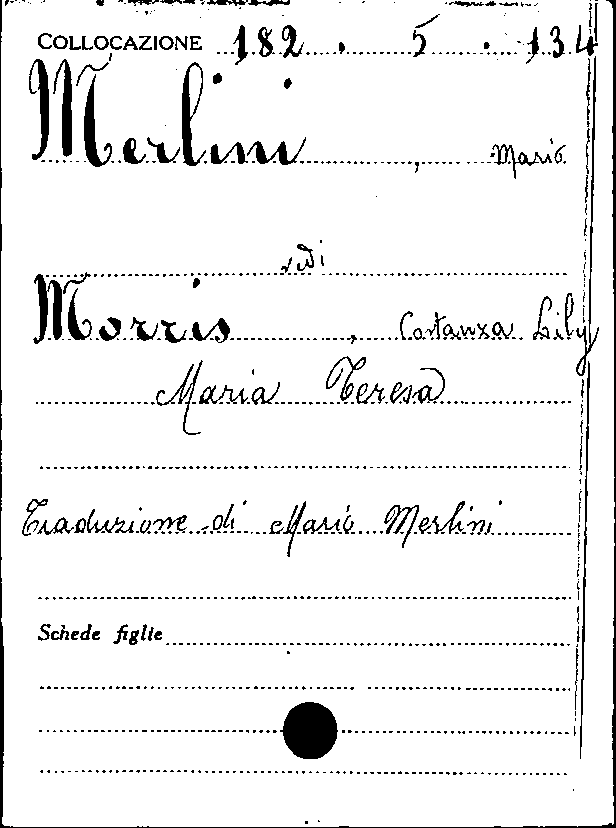 COLLOCAZIONE 182 . 5 . 134
Merlini, Mario
vedi
Morris, Costanza Lily
Maria Teresa
Traduzione di Mario Merlini
Schede figlie